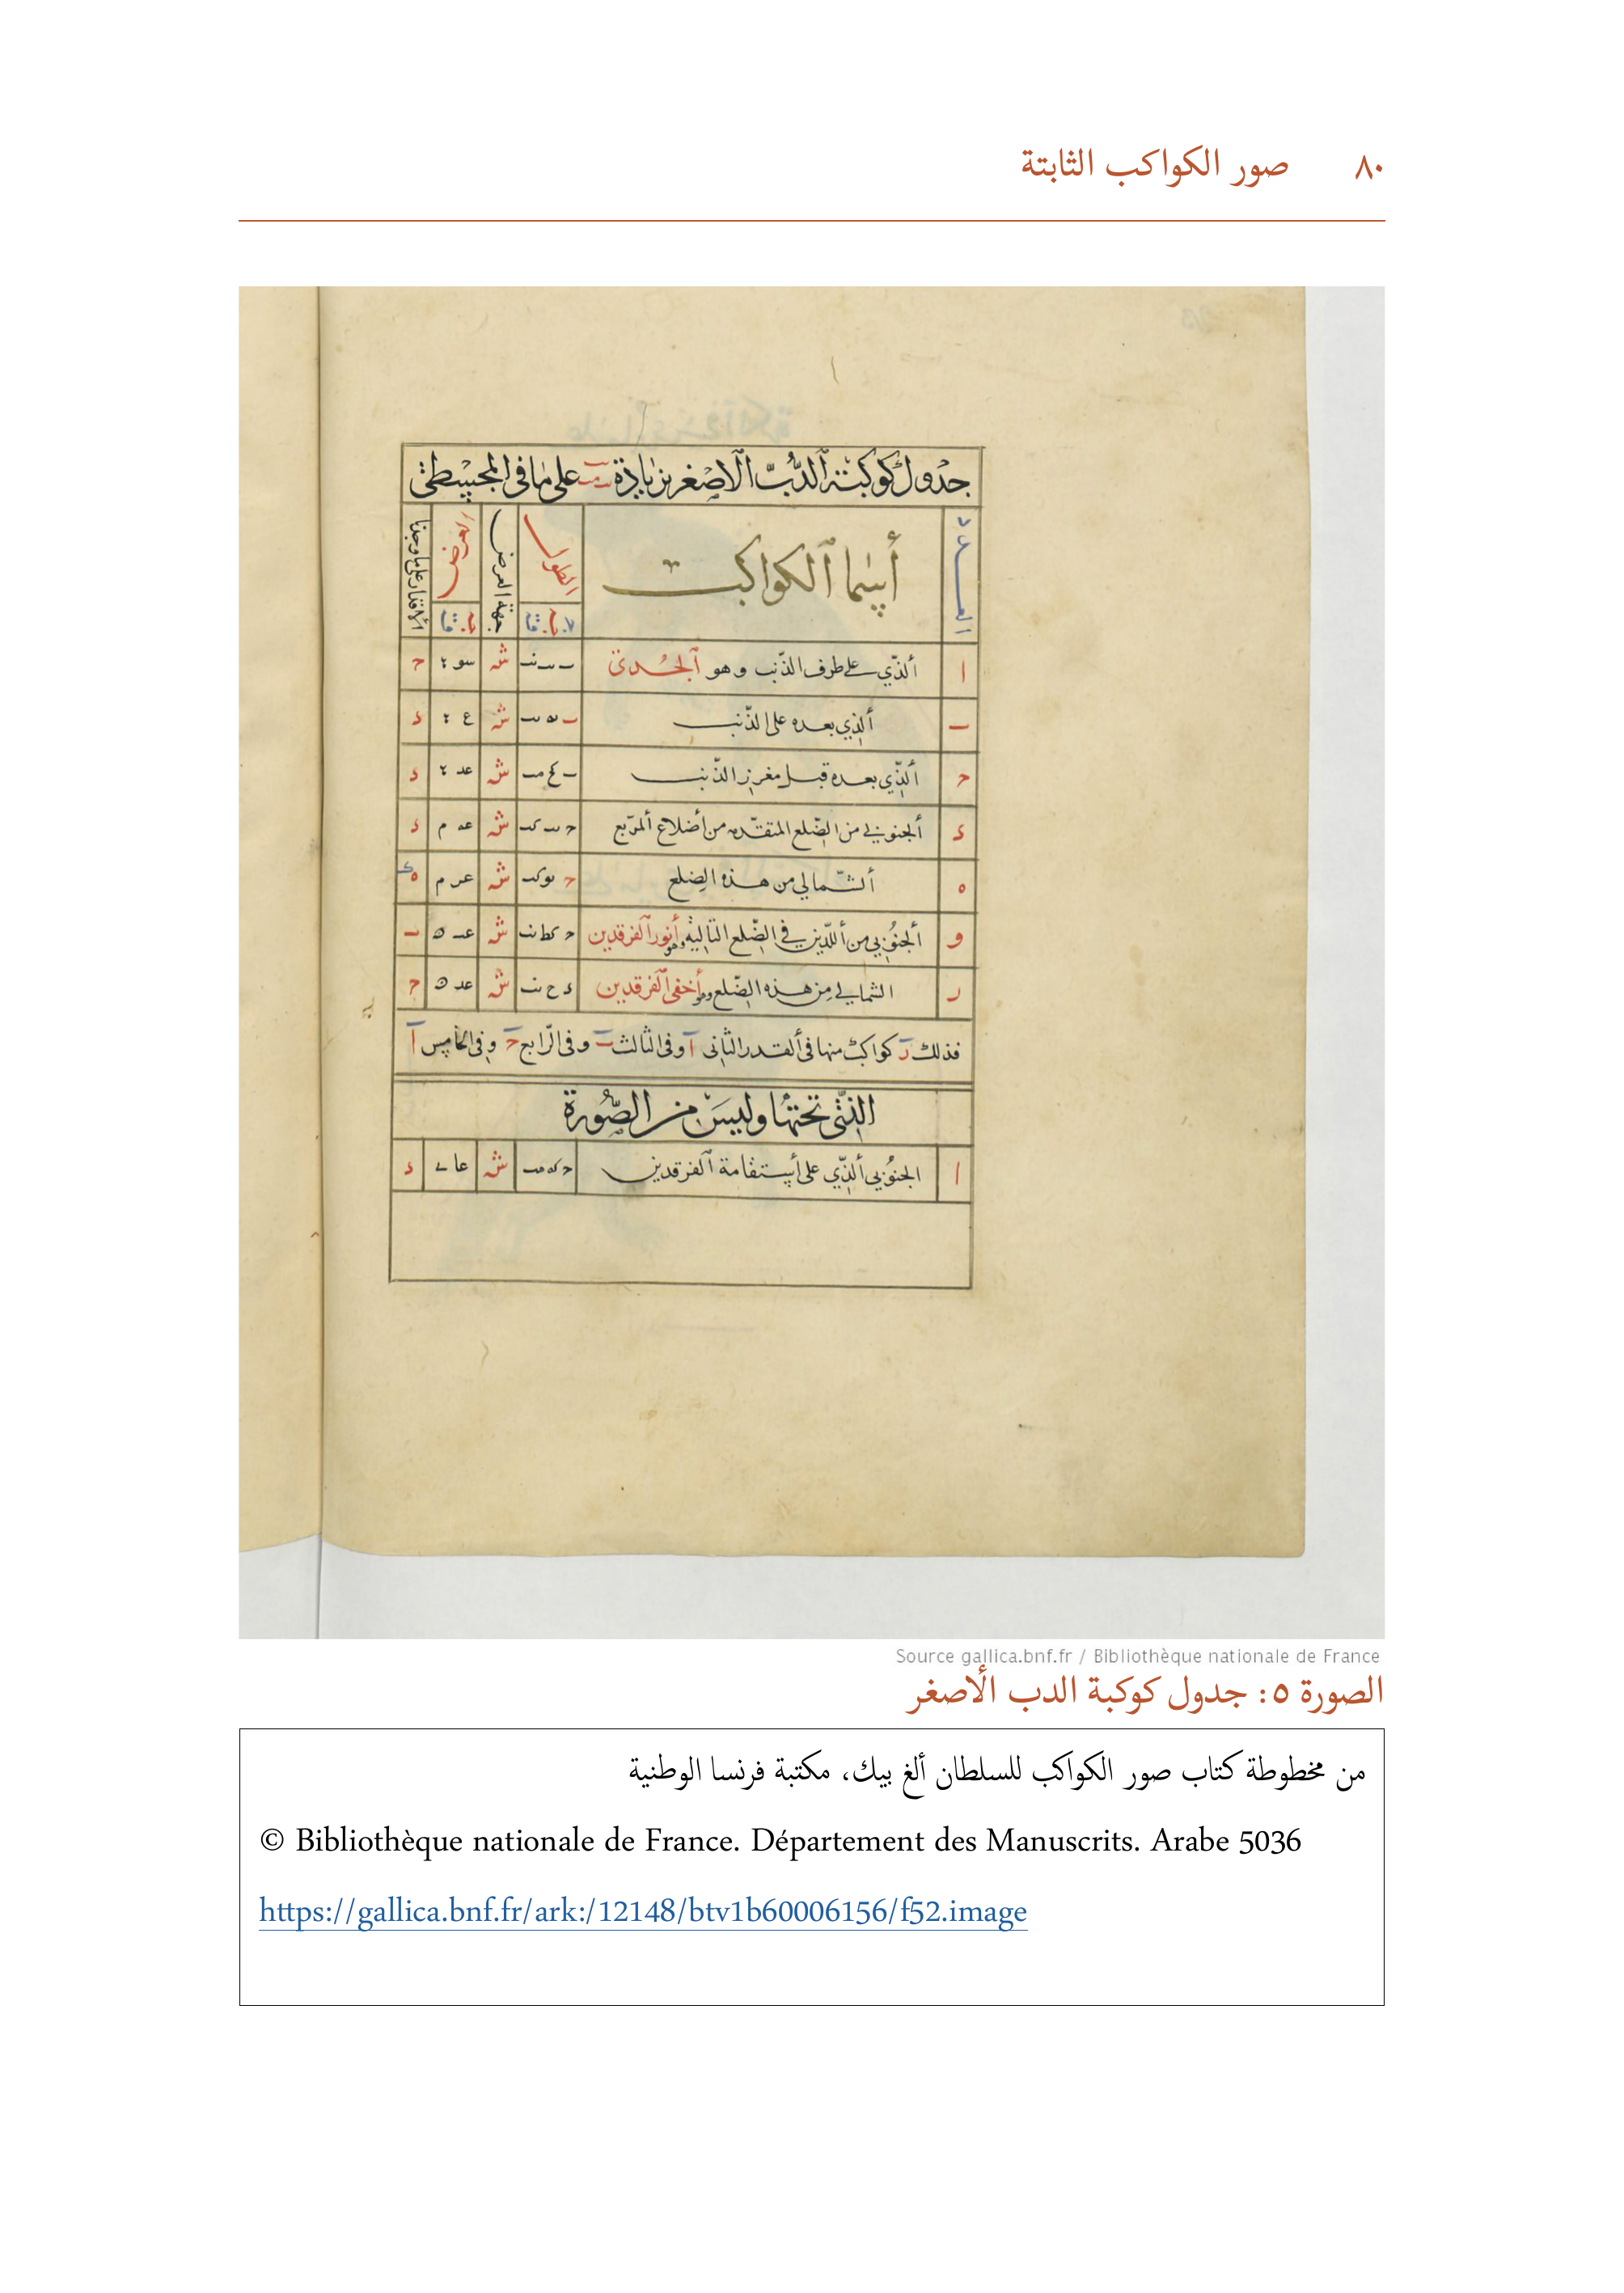 ٨٠ صور الكواكب الثابتة
جدول كوكبة الدب الاصغر بزيادة على ما فى المجسطى
العدد أسما ٱلكواكب الطول جهة العرض العرض الأقدار على ما وجدنا
ا ألذّي على طرف الذّنب وهو ٱلجُدىّ ش سو ح
ب ألذي بعده على الذّنب ش ع د
ح ألذّي بعده قبل مغرز الذّنب ش عد د
د ألجنوبي من الضّلع المتقدّمه من أضلاع ألمربّع ش عه م د
ه ألشّمالي من هذه الضلع ش عر م ه
و ألجنُوبي من أللّذين في الضّلع التاليه وهو أنور ٱلفرقدين ش ب
ر الشمالي من هذه الضّلع وهو أخفى ٱلفرقدين ش ح
فذلك ر كواكب منها فى ألقدر الثانى ا وفى الثالث ب وفى الرّابع ح وفى الخامس ا
التّى تحتها وليس من الصّورة
ا الجنُوبي ألذّي على أستقامة ٱلفرقدين ش عا د
Source gallica.bnf.fr / Bibliothèque nationale de France
الصورة ٥: جدول كوكبة الدب الأصغر
من مخطوطة كتاب صور الكواكب للسلطان ألغ بيك، مكتبة فرنسا الوطنية
© Bibliothèque nationale de France. Département des Manuscrits. Arabe 5036
https://gallica.bnf.fr/ark:/12148/btv1b60006156/f52.image